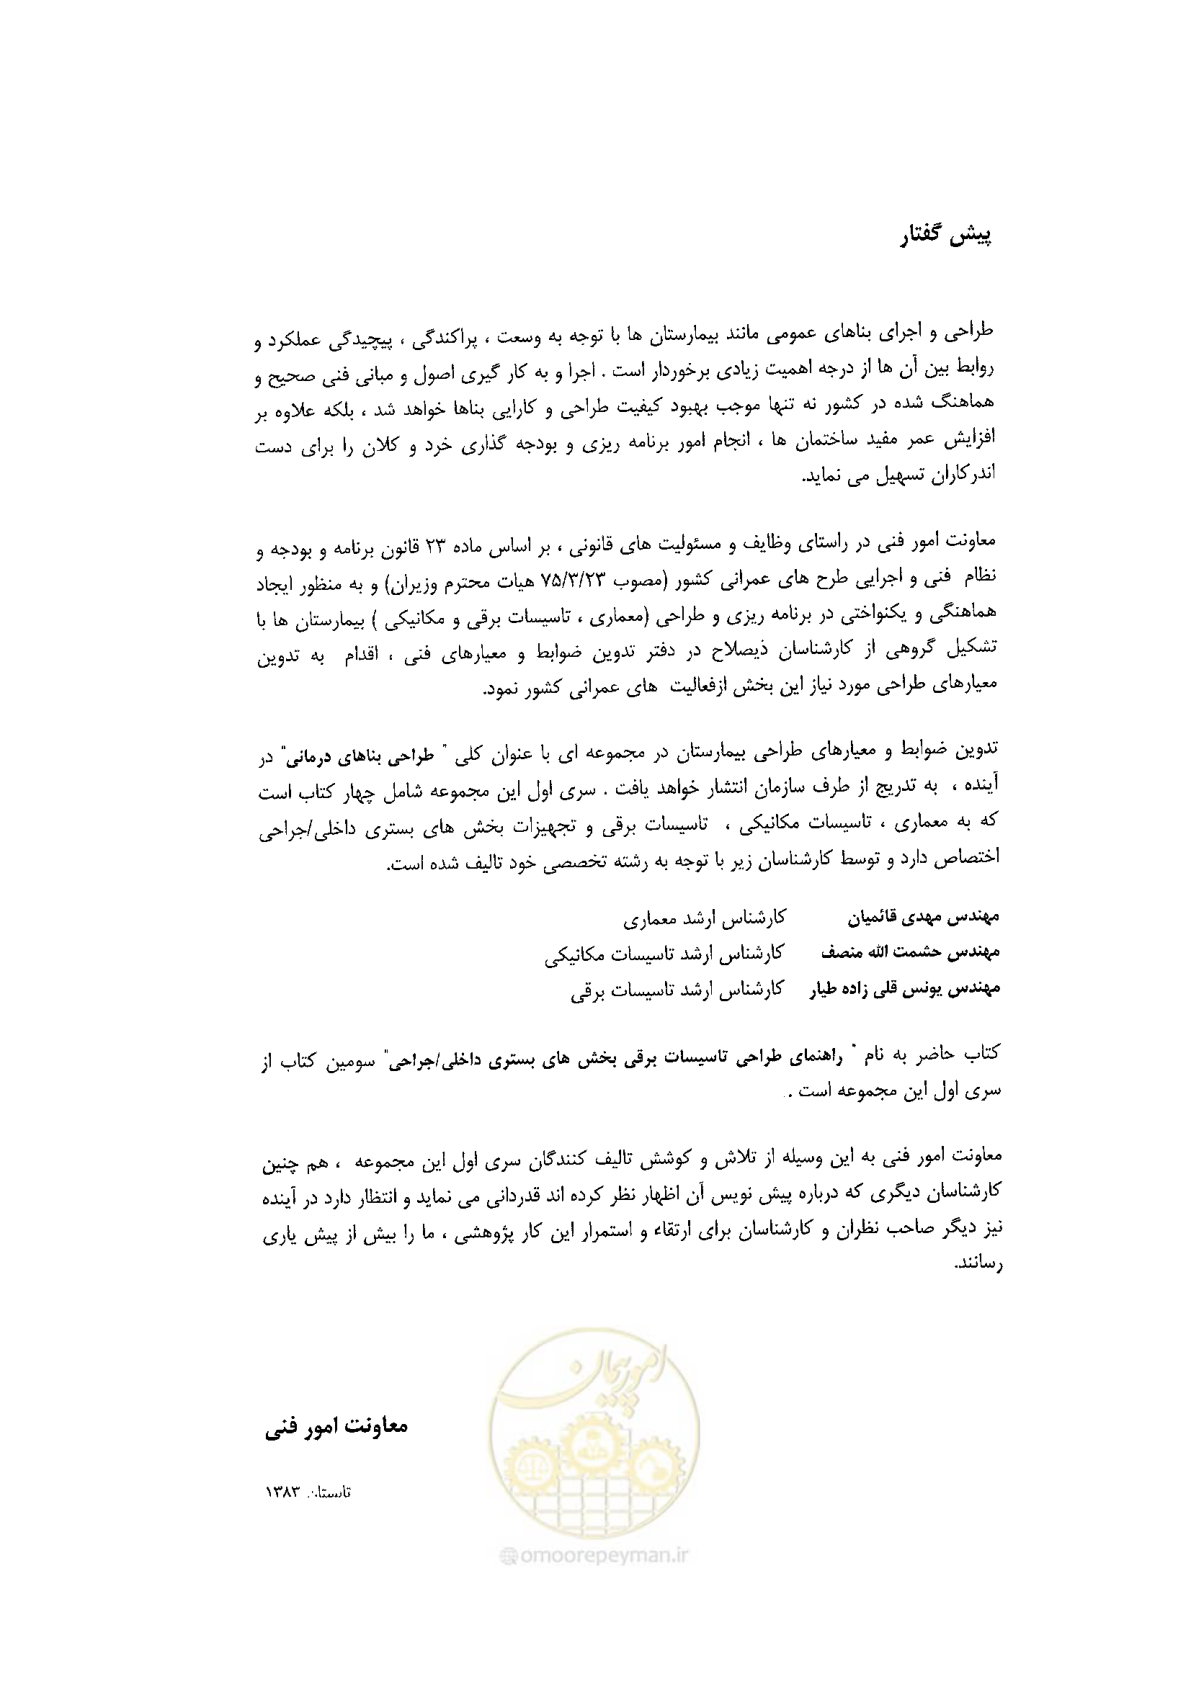 پیش گفتار
طراحی و اجرای بناهای عمومی مانند بیمارستان ها با توجه به وسعت ، پراکندگی ، پیچیدگی عملکرد و
روابط بین آن ها از درجه اهمیت زیادی برخوردار است . اجرا و به کار گیری اصول و مبانی فنی صحیح و
هماهنگ شده در کشور نه تنها موجب بهبود کیفیت طراحی و کارایی بناها خواهد شد ، بلکه علاوه بر
افزایش عمر مفید ساختمان ها ، انجام امور برنامه ریزی و بودجه گذاری خرد و کلان را برای دست
اندرکاران تسهیل می نماید.
معاونت امور فنی در راستای وظایف و مسئولیت های قانونی ، بر اساس ماده ۲۳ قانون برنامه و بودجه و
نظام فنی و اجرایی طرح های عمرانی کشور (مصوب ۷۵/۳/۲۳ هیات محترم وزیران) و به منظور ایجاد
هماهنگی و یکنواختی در برنامه ریزی و طراحی (معماری ، تاسیسات برقی و مکانیکی ) بیمارستان ها با
تشکیل گروهی از کارشناسان ذیصلاح در دفتر تدوین ضوابط و معیارهای فنی ، اقدام به تدوین
معیارهای طراحی مورد نیاز این بخش ازفعالیت های عمرانی کشور نمود.
تدوین ضوابط و معیارهای طراحی بیمارستان در مجموعه ای با عنوان کلی " طراحی بناهای درمانی" در
آینده ، به تدریج از طرف سازمان انتشار خواهد یافت . سری اول این مجموعه شامل چهار کتاب است
که به معماری ، تاسیسات مکانیکی ، تاسیسات برقی و تجهیزات بخش های بستری داخلی/جراحی
اختصاص دارد و توسط کارشناسان زیر با توجه به رشته تخصصی خود تالیف شده است.
مهندس مهدی قائمیان کارشناس ارشد معماری
مهندس حشمت الله منصف کارشناس ارشد تاسیسات مکانیکی
مهندس یونس قلی زاده طیار کارشناس ارشد تاسیسات برقی
کتاب حاضر به نام " راهنمای طراحی تاسیسات برقی بخش های بستری داخلی/جراحی" سومین کتاب از
سری اول این مجموعه است .
معاونت امور فنی به این وسیله از تلاش و کوشش تالیف کنندگان سری اول این مجموعه ، هم چنین
کارشناسان دیگری که درباره پیش نویس آن اظهار نظر کرده اند قدردانی می نماید و انتظار دارد در آینده
نیز دیگر صاحب نظران و کارشناسان برای ارتقاء و استمرار این کار پژوهشی ، ما را بیش از پیش یاری
رسانند.
امور پیمان
معاونت امور فنی
تابستان ۱۳۸۳
@omoorepeyman.ir